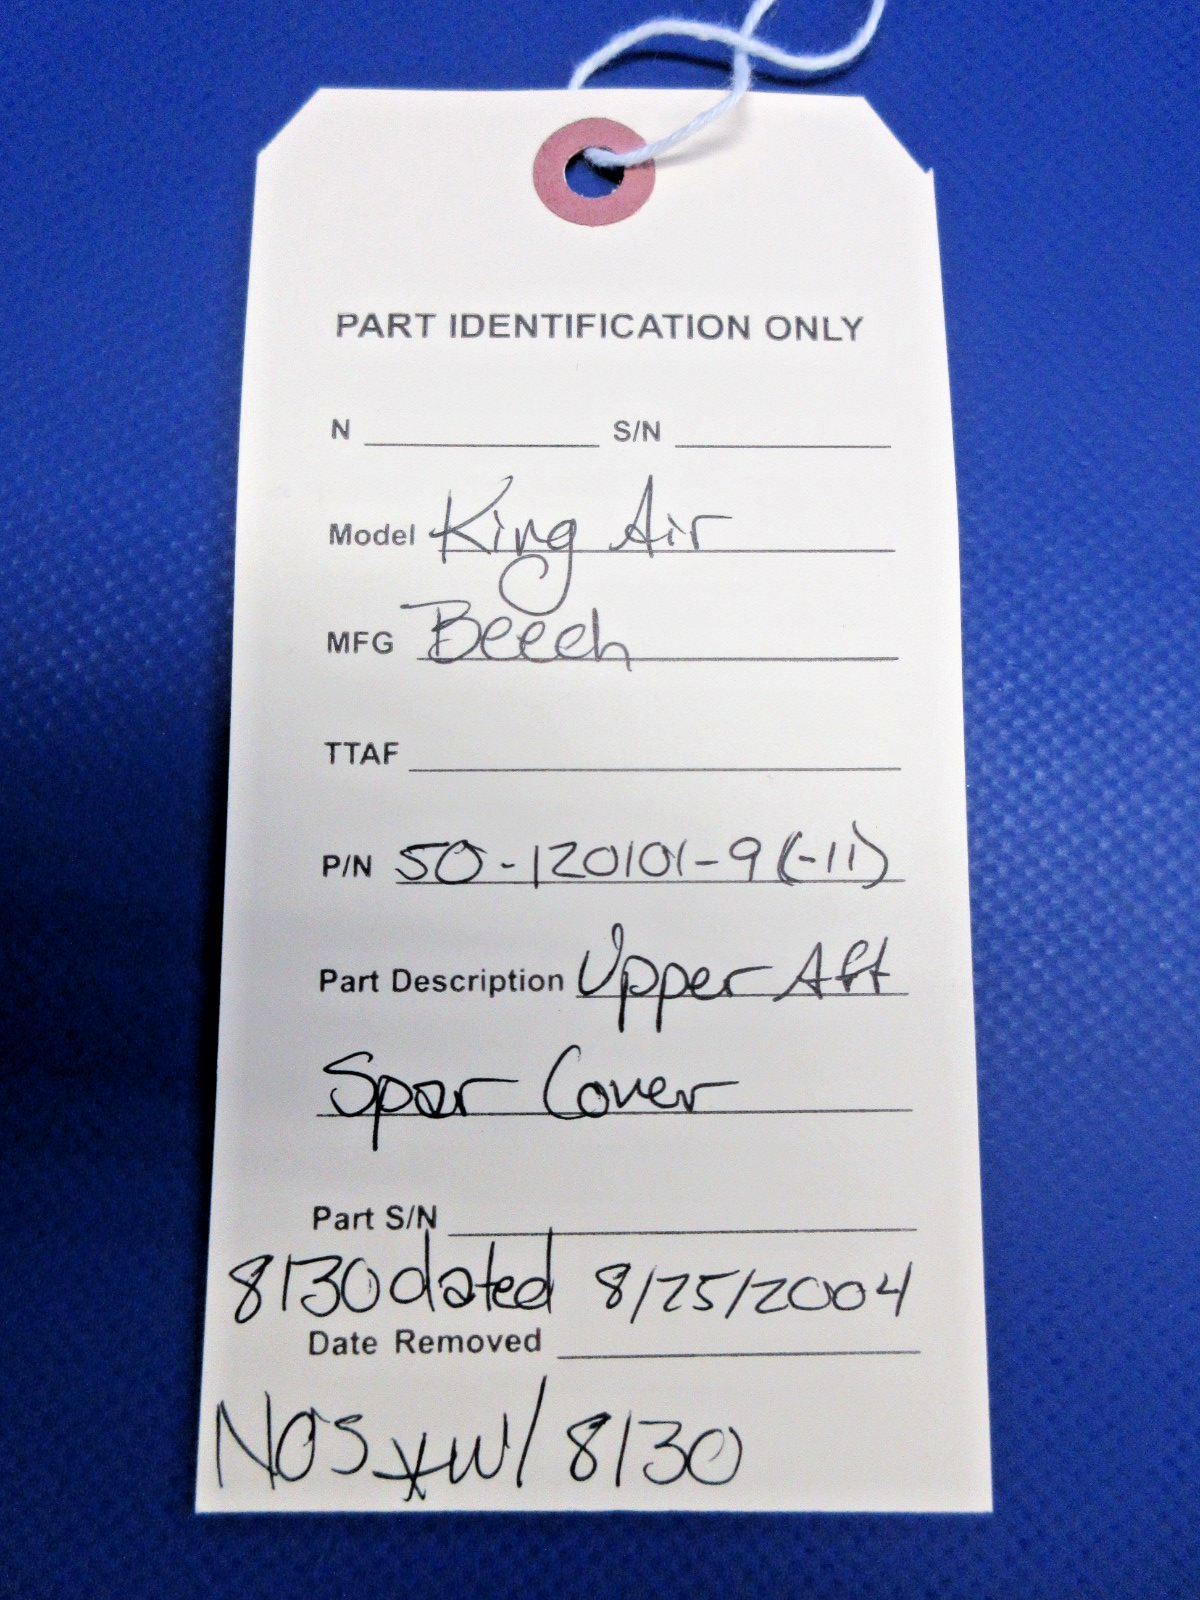 PART IDENTIFICATION ONLY
N S/N
Model King Air
MFG Beech
TTAF
P/N 50-120101-9(-11)
Part Description Upper Aft
Spar Cover
Part S/N
8130 dated 8/25/2004
Date Removed
NOS * w/ 8130